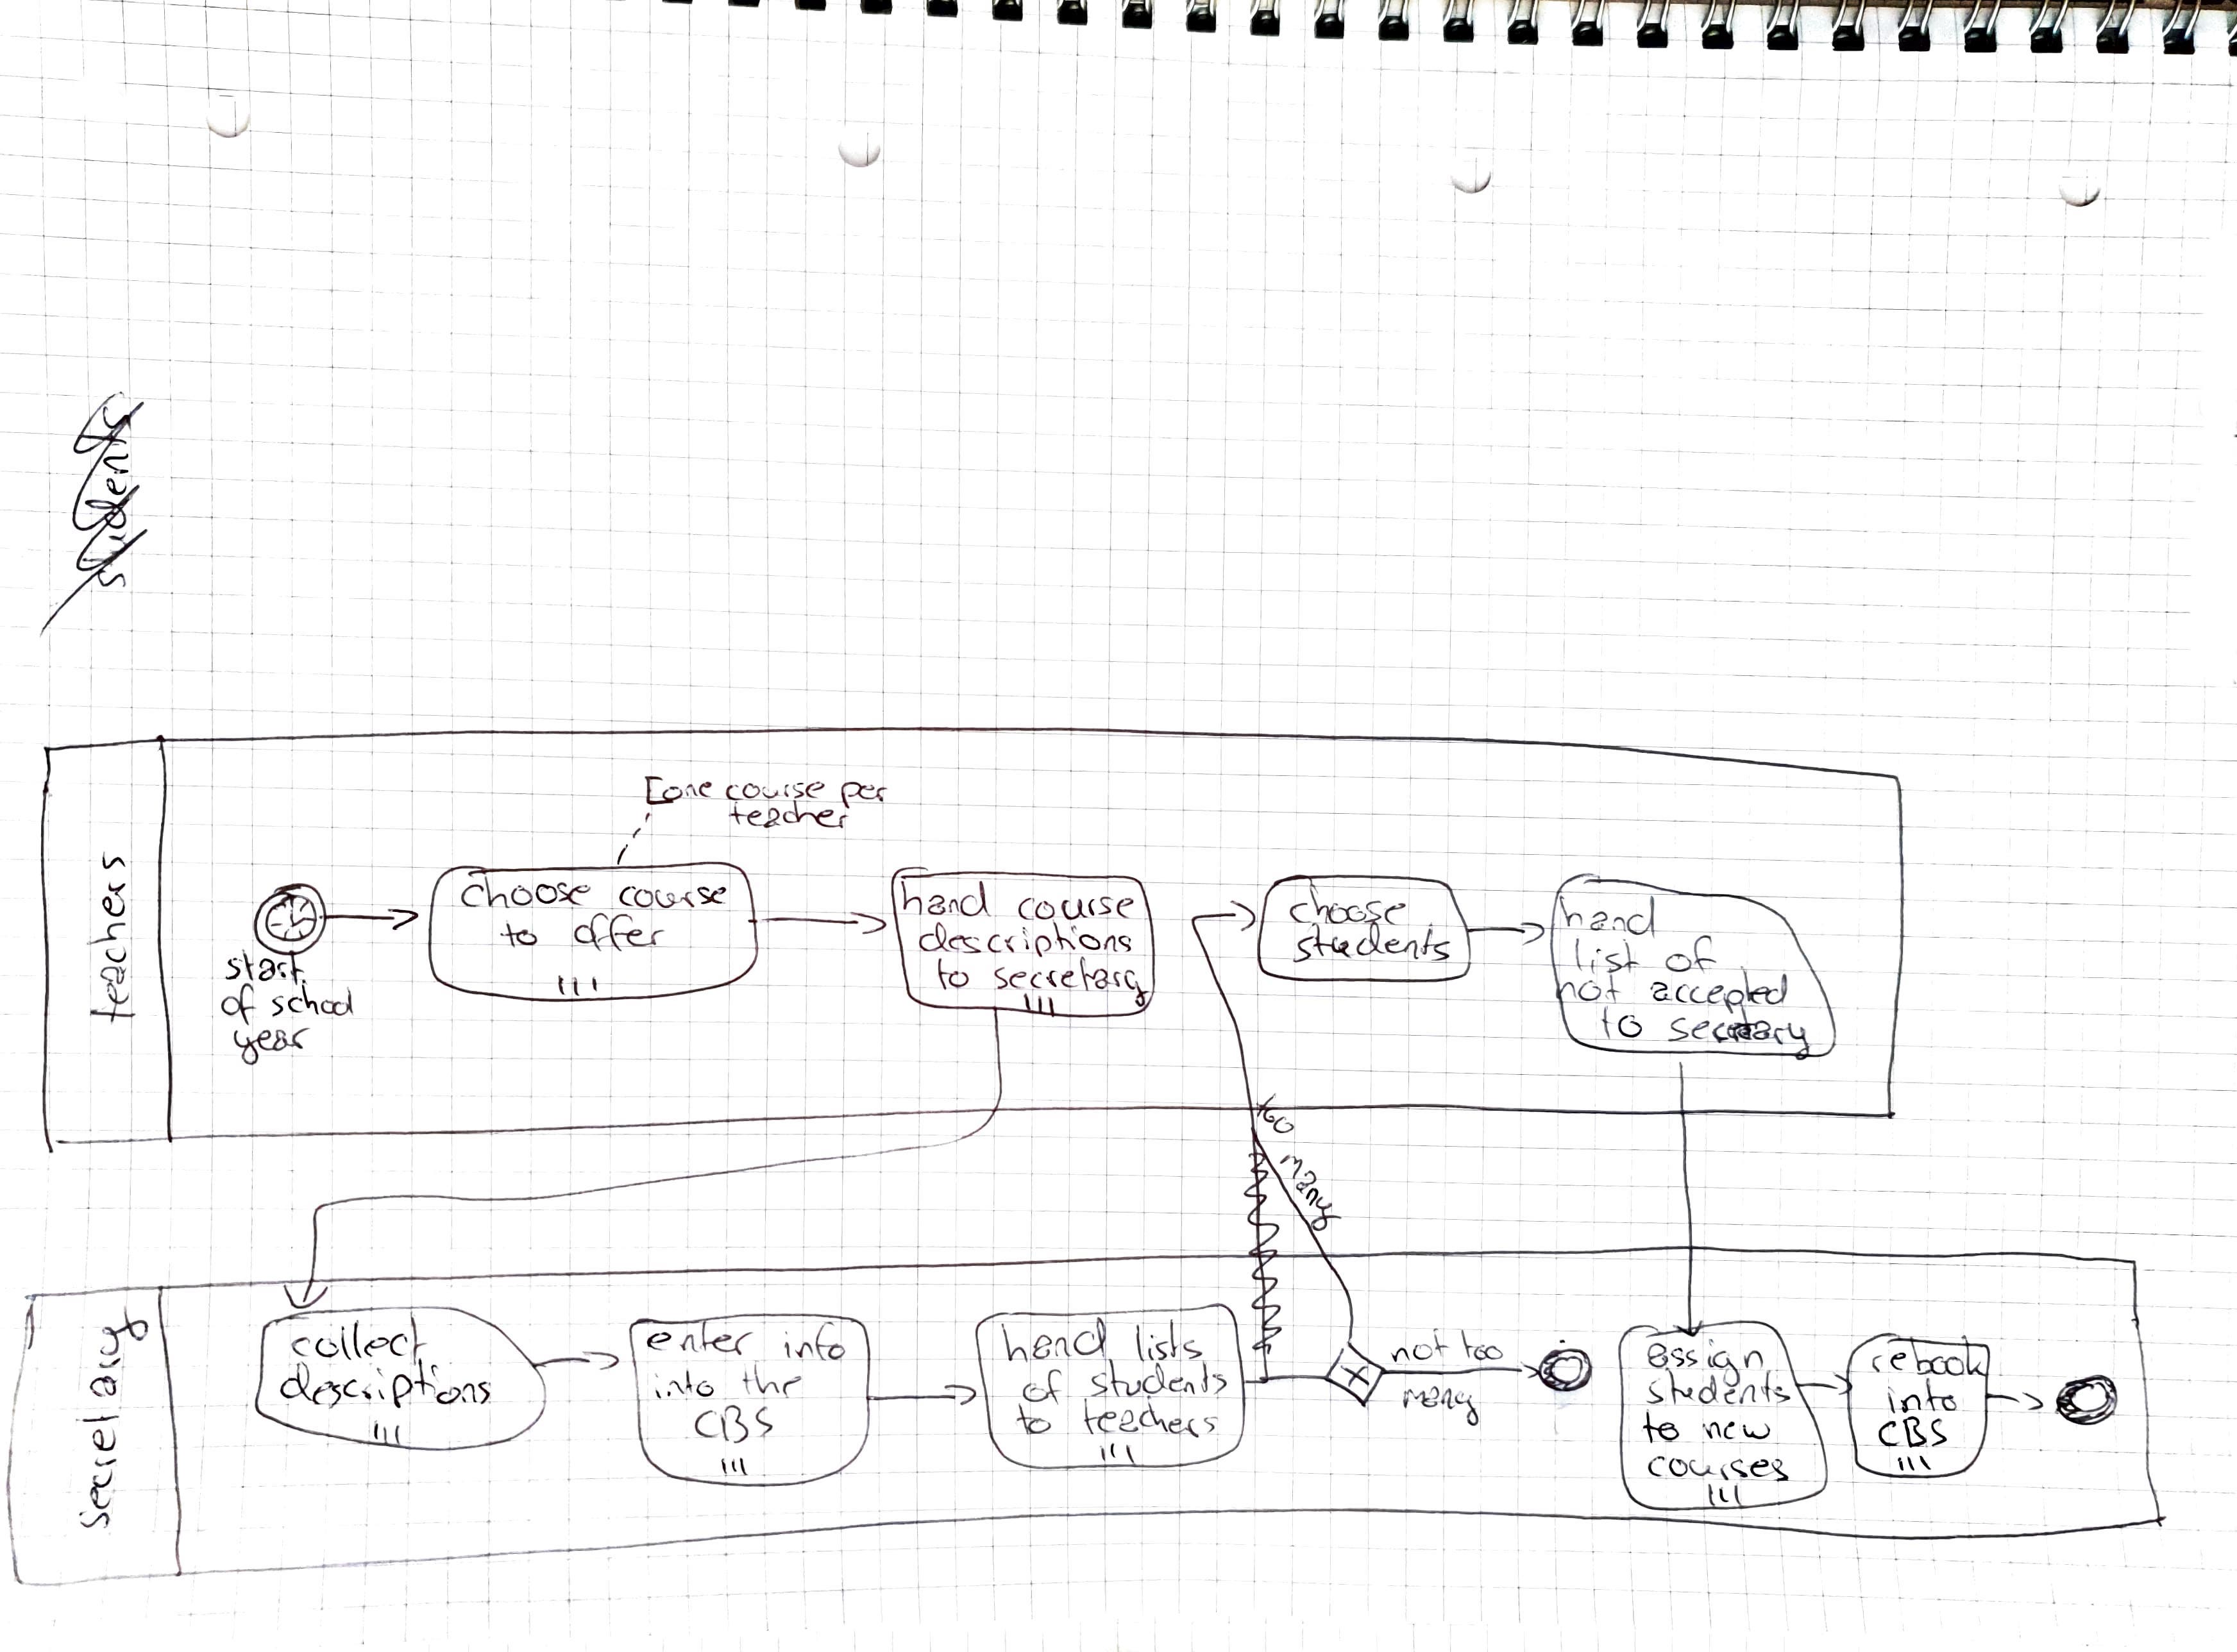 students
teachers
[one course per
teacher
start
of school
year
choose course
to offer
hand course
descriptions
to secretary
choose
students
hand
list of
not accepted
to secretary
too
many
secretary
collect
descriptions
enter info
into the
CBS
hand lists
of students
to teachers
not too
many
assign
students
to new
courses
rebook
into
CBS